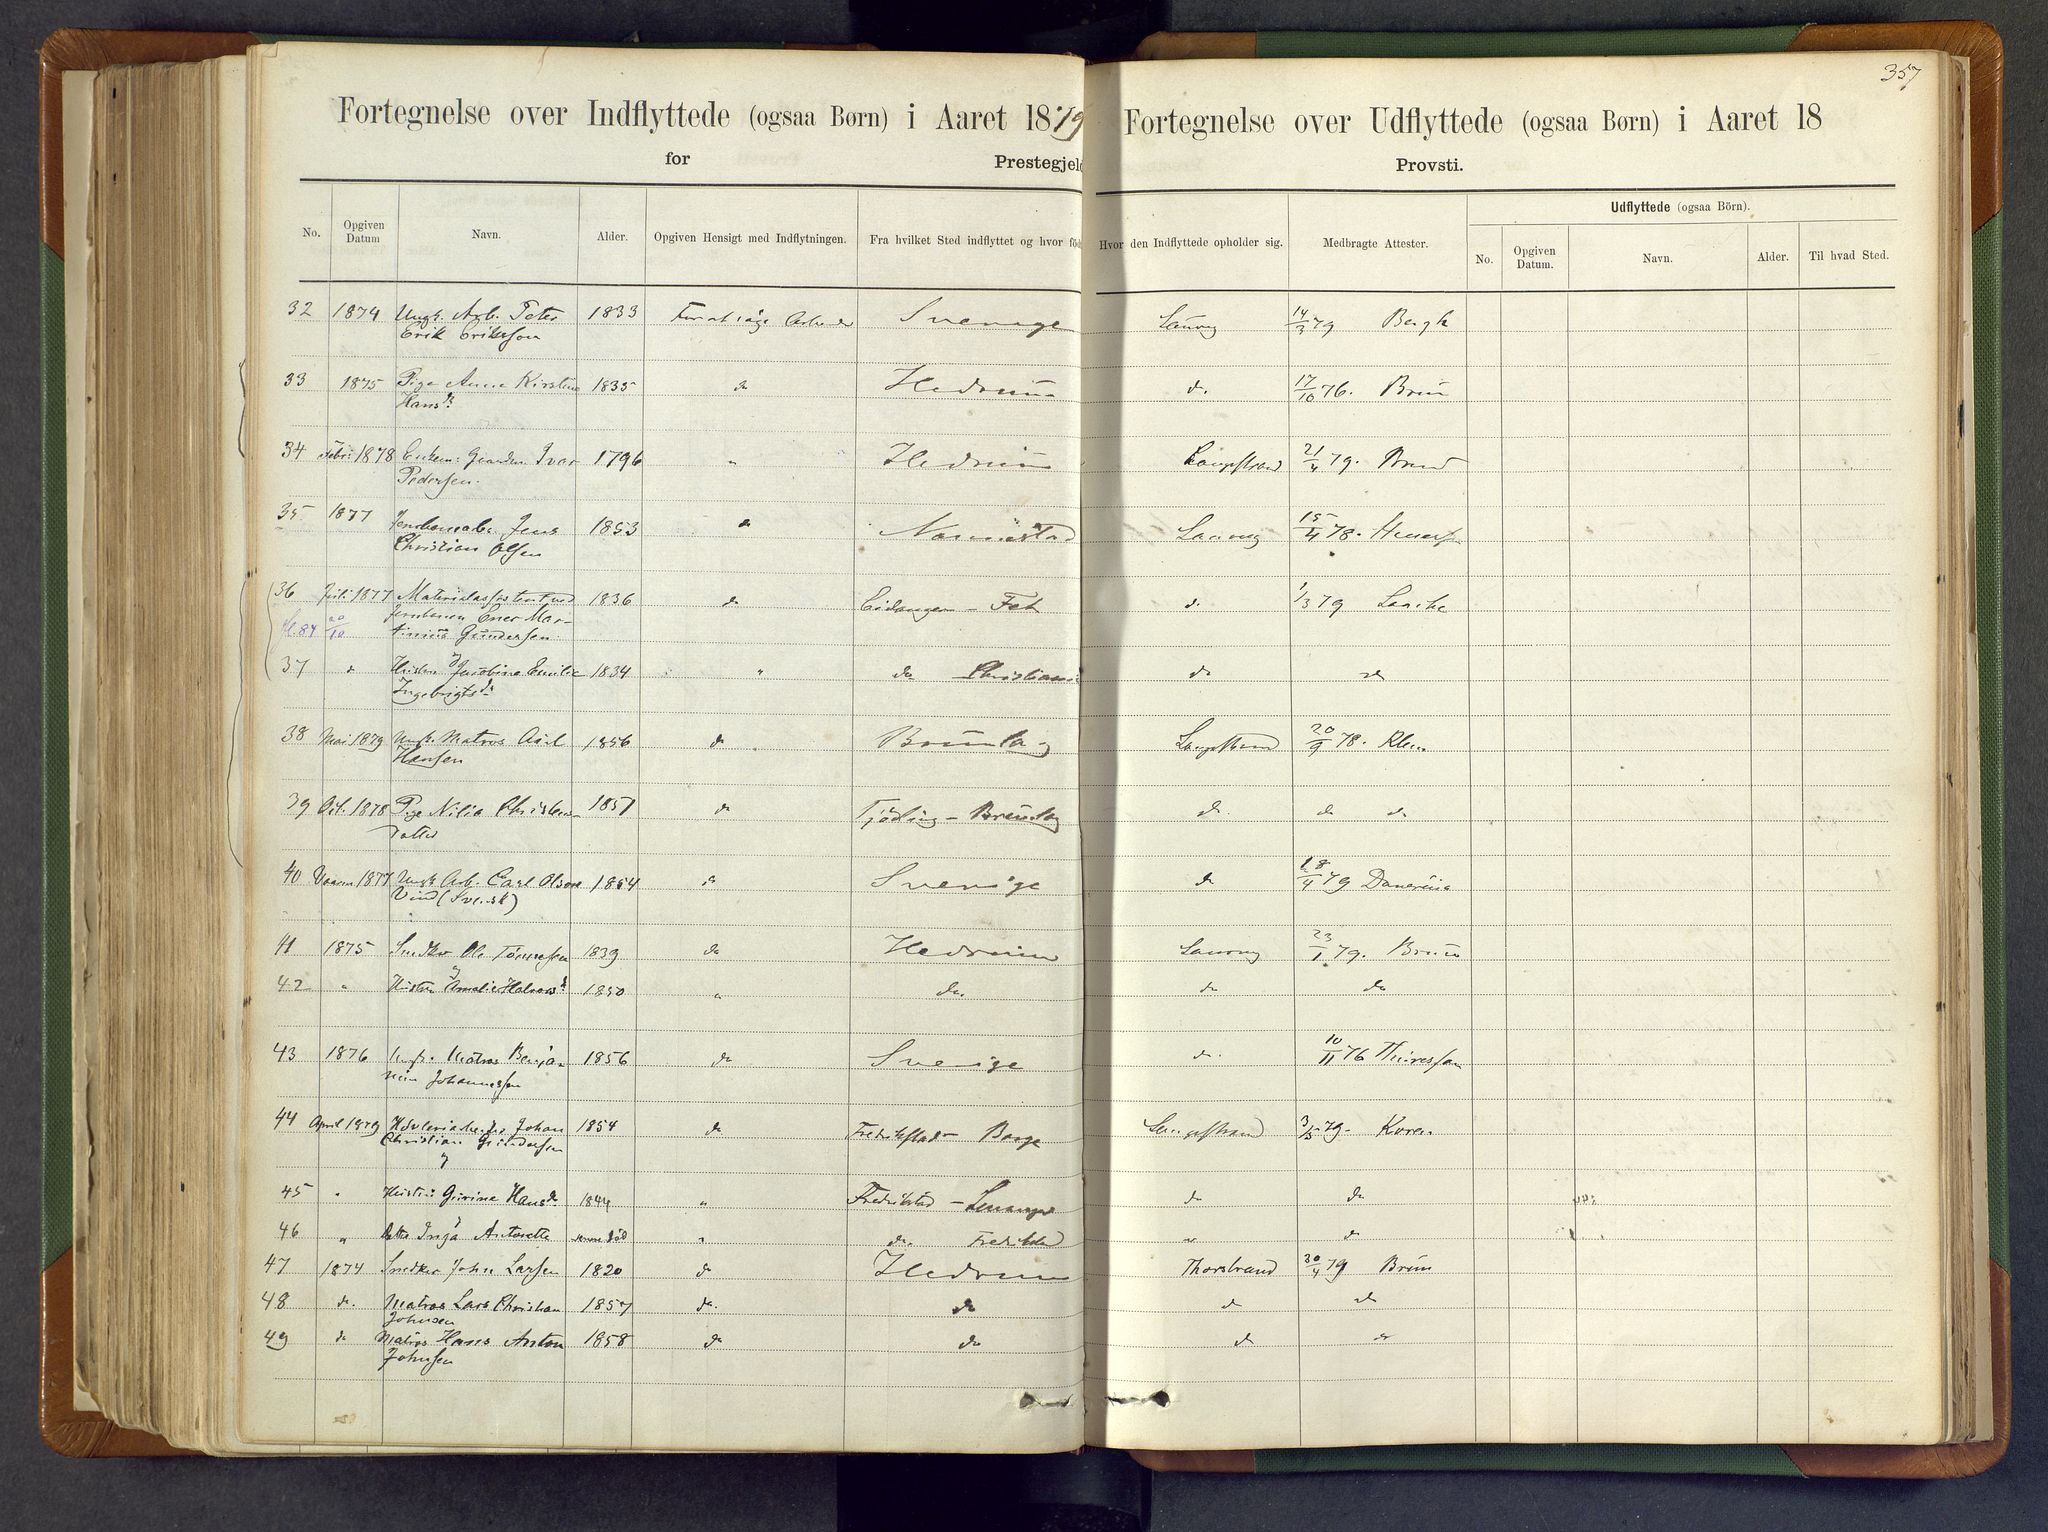 357
Fortegnelse over Indflyttede (ogsaa Børn) i Aaret 1879
for Prestegjeld
Fortegnelse over Udflyttede (ogsaa Børn) i Aaret 18
Provsti.
No. Opgiven Datum Navn. Alder. Opgiven Hensigt med Indflytningen. Fra hvilket Sted indflyttet og hvor föd Hvor den Indflyttede opholder sig. Medbragte Attester. Udflyttede (ogsaa Börn).
No. Opgiven Datum. Navn. Alder. Til hvad Sted.
32 1874 Ungk. Arb. Peter 1833 Sverige 14/3 79 Bergh
Erik Eriksson
33 1875 Pige Anne Kirstine 1835 do Hedrum d. 17/10 76. Brun
Hansd.
34 Febr. 1878 Ivar 1796 " Hedrum Langestrand 21/4 79.
Pedersen.
35 1877 Jens 1853 do Laurvig 15/4 78.
Christian Olsen
36 Juli 1877 1836 do Eidanger - d. 1/3 79
fl. 84 20/10 Jernbanen Mar-
tinius Gundersen.
37 " Hustru Jacobine Emilie 1834 " do Christiania do do
Ingebrigtsd.
38 Mai 1879 Ungk. Matros Axel 1856 do Brunla Langestrand 20/9 78.
Hansen
39 Oct. 1878 Pige Nilia Christens- 1857 do Tjødling - Brunla d. do do
datter
40 1877 Ungk. Arb. Carl Olsen 1854 do Sverige do 18/4 79
Vind (Svensk)
41 1875 Snedker Ole Tønnessen 1839 do Hedrum Laurvig 23/1 79. Brun
42 " Hustru Amalie 1850 " do. do do
43 1876 Ungk. Matros Benja- 1856 do Sverige do. 10/11 76
min Johannessen
44 April 1879 Johan 1854 do Fredrikstad - Borge Langestrand 3/5 79. Koren
Christian Gundersen
45 " Hustru Gurine Hansd. 1844 " Fredrikstad - do do
46 " Datter Inga Antonette " do. Fredrikstad " do
47 1874 Snedker John Larsen 1820 do Hedrum Thorstrand 30/4 79 Brun
48 do. Matros Lars Christian 1857 do. do do do
Johnsen
49 do Matros Hans Anton 1858 do do do do
Johnsen